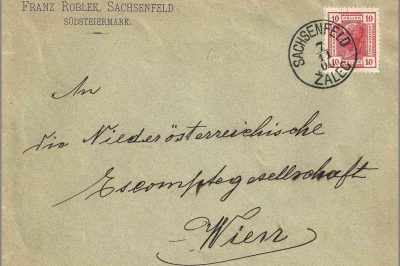 FRANZ ROBLEK, SACHSENFELD
SÜDSTEIERMARK.
SACHSENFELD
ŽALEC
10 10
10 10
An
die Niederösterreichische
Escomptegesellschaft
Wien